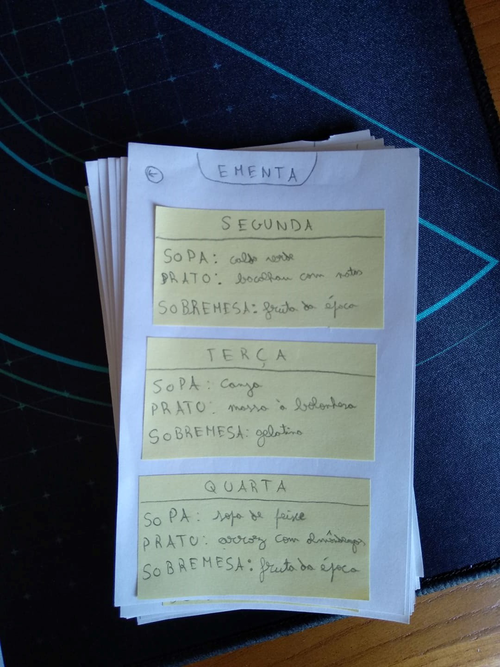 EMENTA
SEGUNDA
SOPA: caldo verde
PRATO: bacalhau com natas
SOBREMESA: fruta da época
TERÇA
SOPA: Canja
PRATO: massa à bolonhesa
SOBREMESA: gelatina
QUARTA
SOPA: sopa de peixe
PRATO: arroz com almôndegas
SOBREMESA: fruta da época